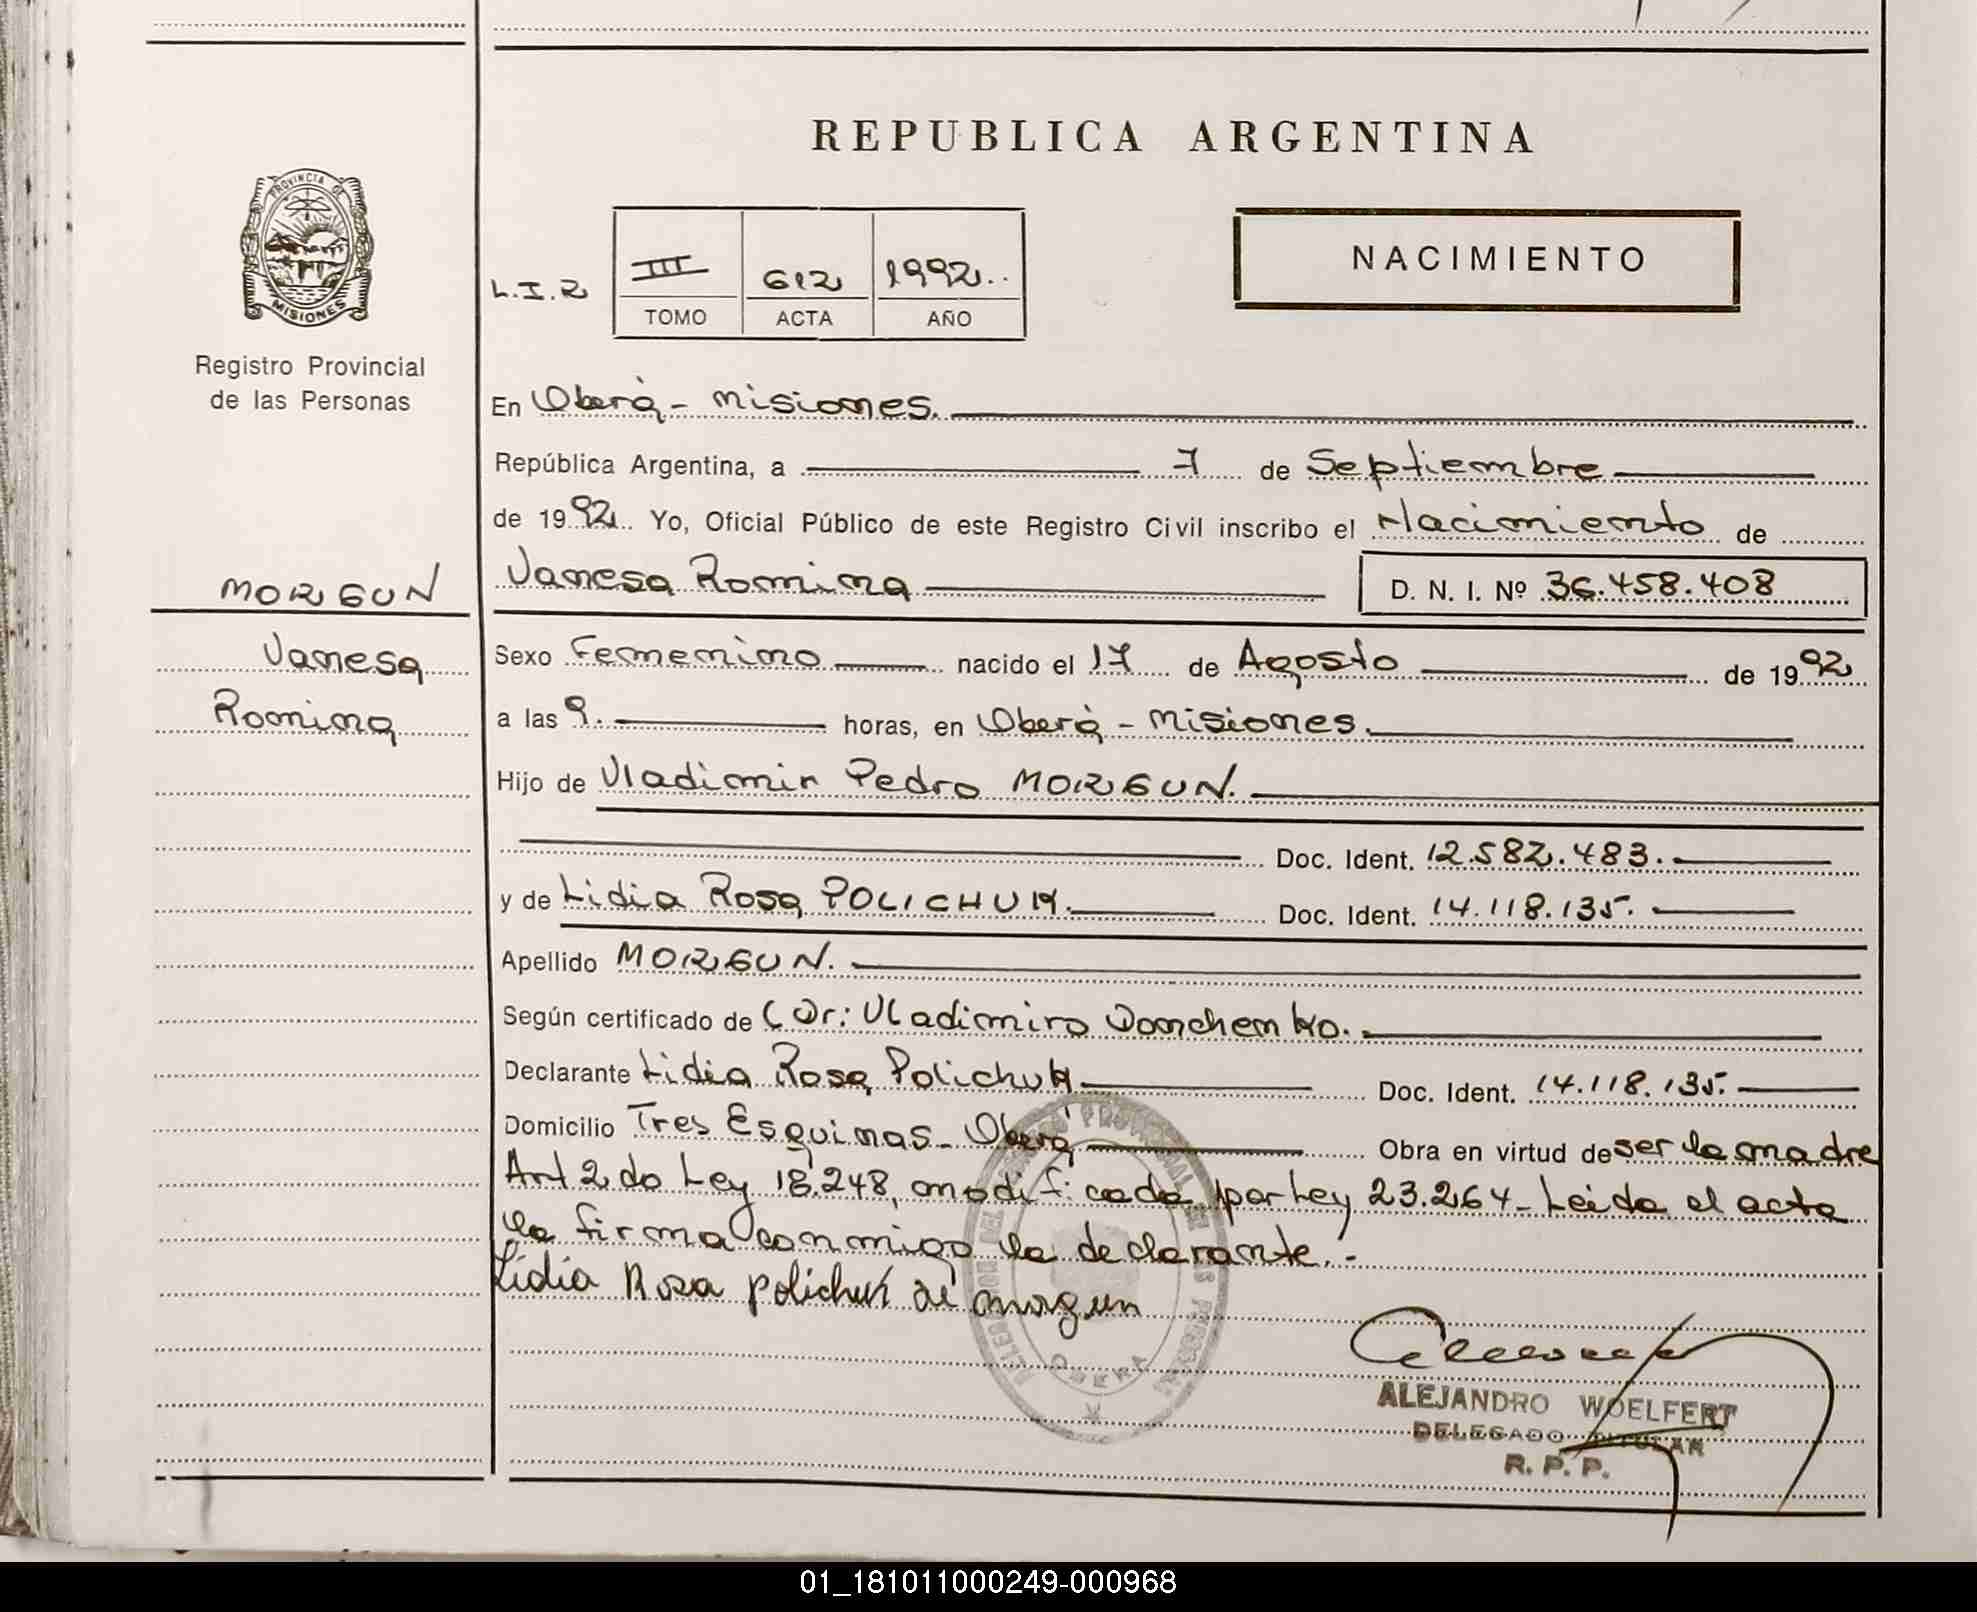 REPUBLICA ARGENTINA
PROVINCIA DE
MISIONES
Registro Provincial
de las Personas
L.I.2
III 612 1992..
TOMO ACTA AÑO
NACIMIENTO
En Oberà - Misiones.
República Argentina, a 7 de Septiembre
de 1992. Yo, Oficial Público de este Registro Civil inscribo el Nacimiento de
MORGUN
Vanesa Romina D. N. I. Nº 36.458.408
Vanesa
Romina
Sexo Femenino nacido el 17 de Agosto de 1992
a las 9. horas, en Oberà - Misiones.
Hijo de Vladimir Pedro MORGUN.
Doc. Ident. 12.582.483.
y de Lidia Rosa POLICHUK. Doc. Ident. 14.118.135.
Apellido MORGUN.
Según certificado de Dr: Vladimiro Donchenko.
Declarante Lidia Rosa Polichuk Doc. Ident. 14.118.135.
Domicilio Tres Esquinas - Oberá Obra en virtud de ser la madre
Art 2do Ley 18.248, modificada por Ley 23.264 - Leida el acta
la firma conmigo la declarante. -
Lidia Rosa polichuk de morgun
OBERA
ALEJANDRO WOELFERT
DELEGADO TITULAR
R. P. P.
01_181011000249-000968